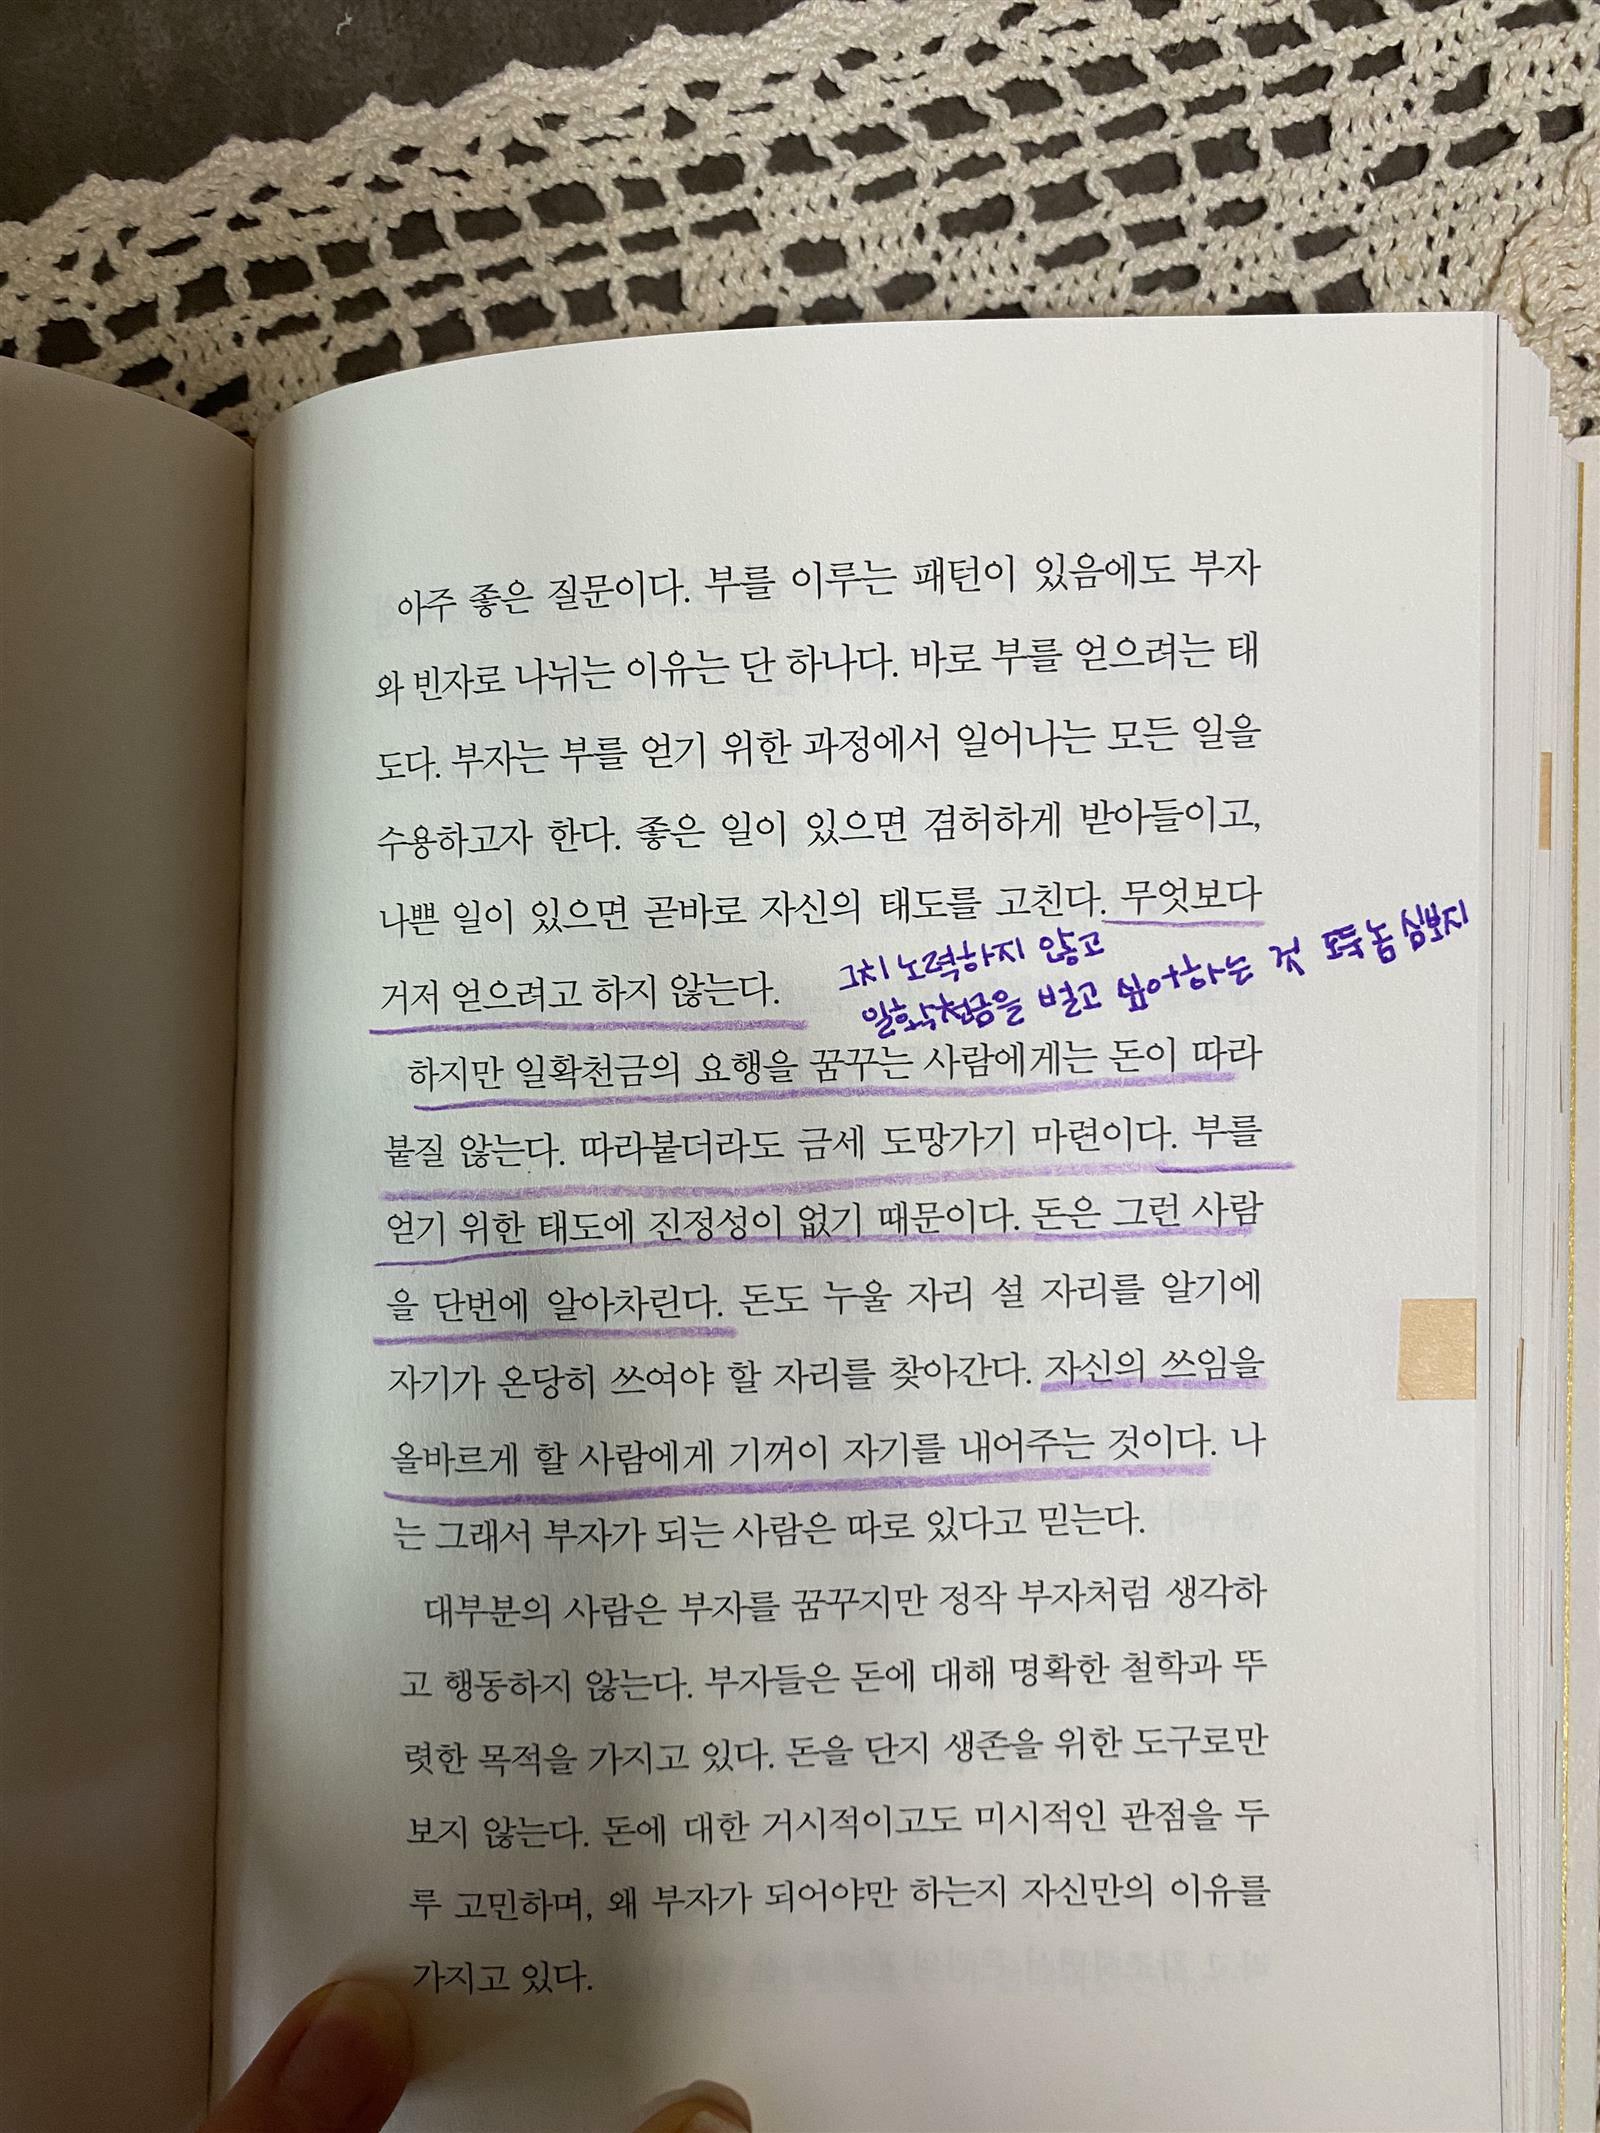 아주 좋은 질문이다. 부를 이루는 패턴이 있음에도 부자
와 빈자로 나뉘는 이유는 단 하나다. 바로 부를 얻으려는 태
도다. 부자는 부를 얻기 위한 과정에서 일어나는 모든 일을
수용하고자 한다. 좋은 일이 있으면 겸허하게 받아들이고,
나쁜 일이 있으면 곧바로 자신의 태도를 고친다. 무엇보다
거저 얻으려고 하지 않는다.
그치 노력하지 않고
일확천금을 벌고 싶어하는 것 도둑놈심보지
하지만 일확천금의 요행을 꿈꾸는 사람에게는 돈이 따라
붙질 않는다. 따라붙더라도 금세 도망가기 마련이다. 부를
얻기 위한 태도에 진정성이 없기 때문이다. 돈은 그런 사람
을 단번에 알아차린다. 돈도 누울 자리 설 자리를 알기에
자기가 온당히 쓰여야 할 자리를 찾아간다. 자신의 쓰임을
올바르게 할 사람에게 기꺼이 자기를 내어주는 것이다. 나
는 그래서 부자가 되는 사람은 따로 있다고 믿는다.
대부분의 사람은 부자를 꿈꾸지만 정작 부자처럼 생각하
고 행동하지 않는다. 부자들은 돈에 대해 명확한 철학과 뚜
렷한 목적을 가지고 있다. 돈을 단지 생존을 위한 도구로만
보지 않는다. 돈에 대한 거시적이고도 미시적인 관점을 두
루 고민하며, 왜 부자가 되어야만 하는지 자신만의 이유를
가지고 있다.